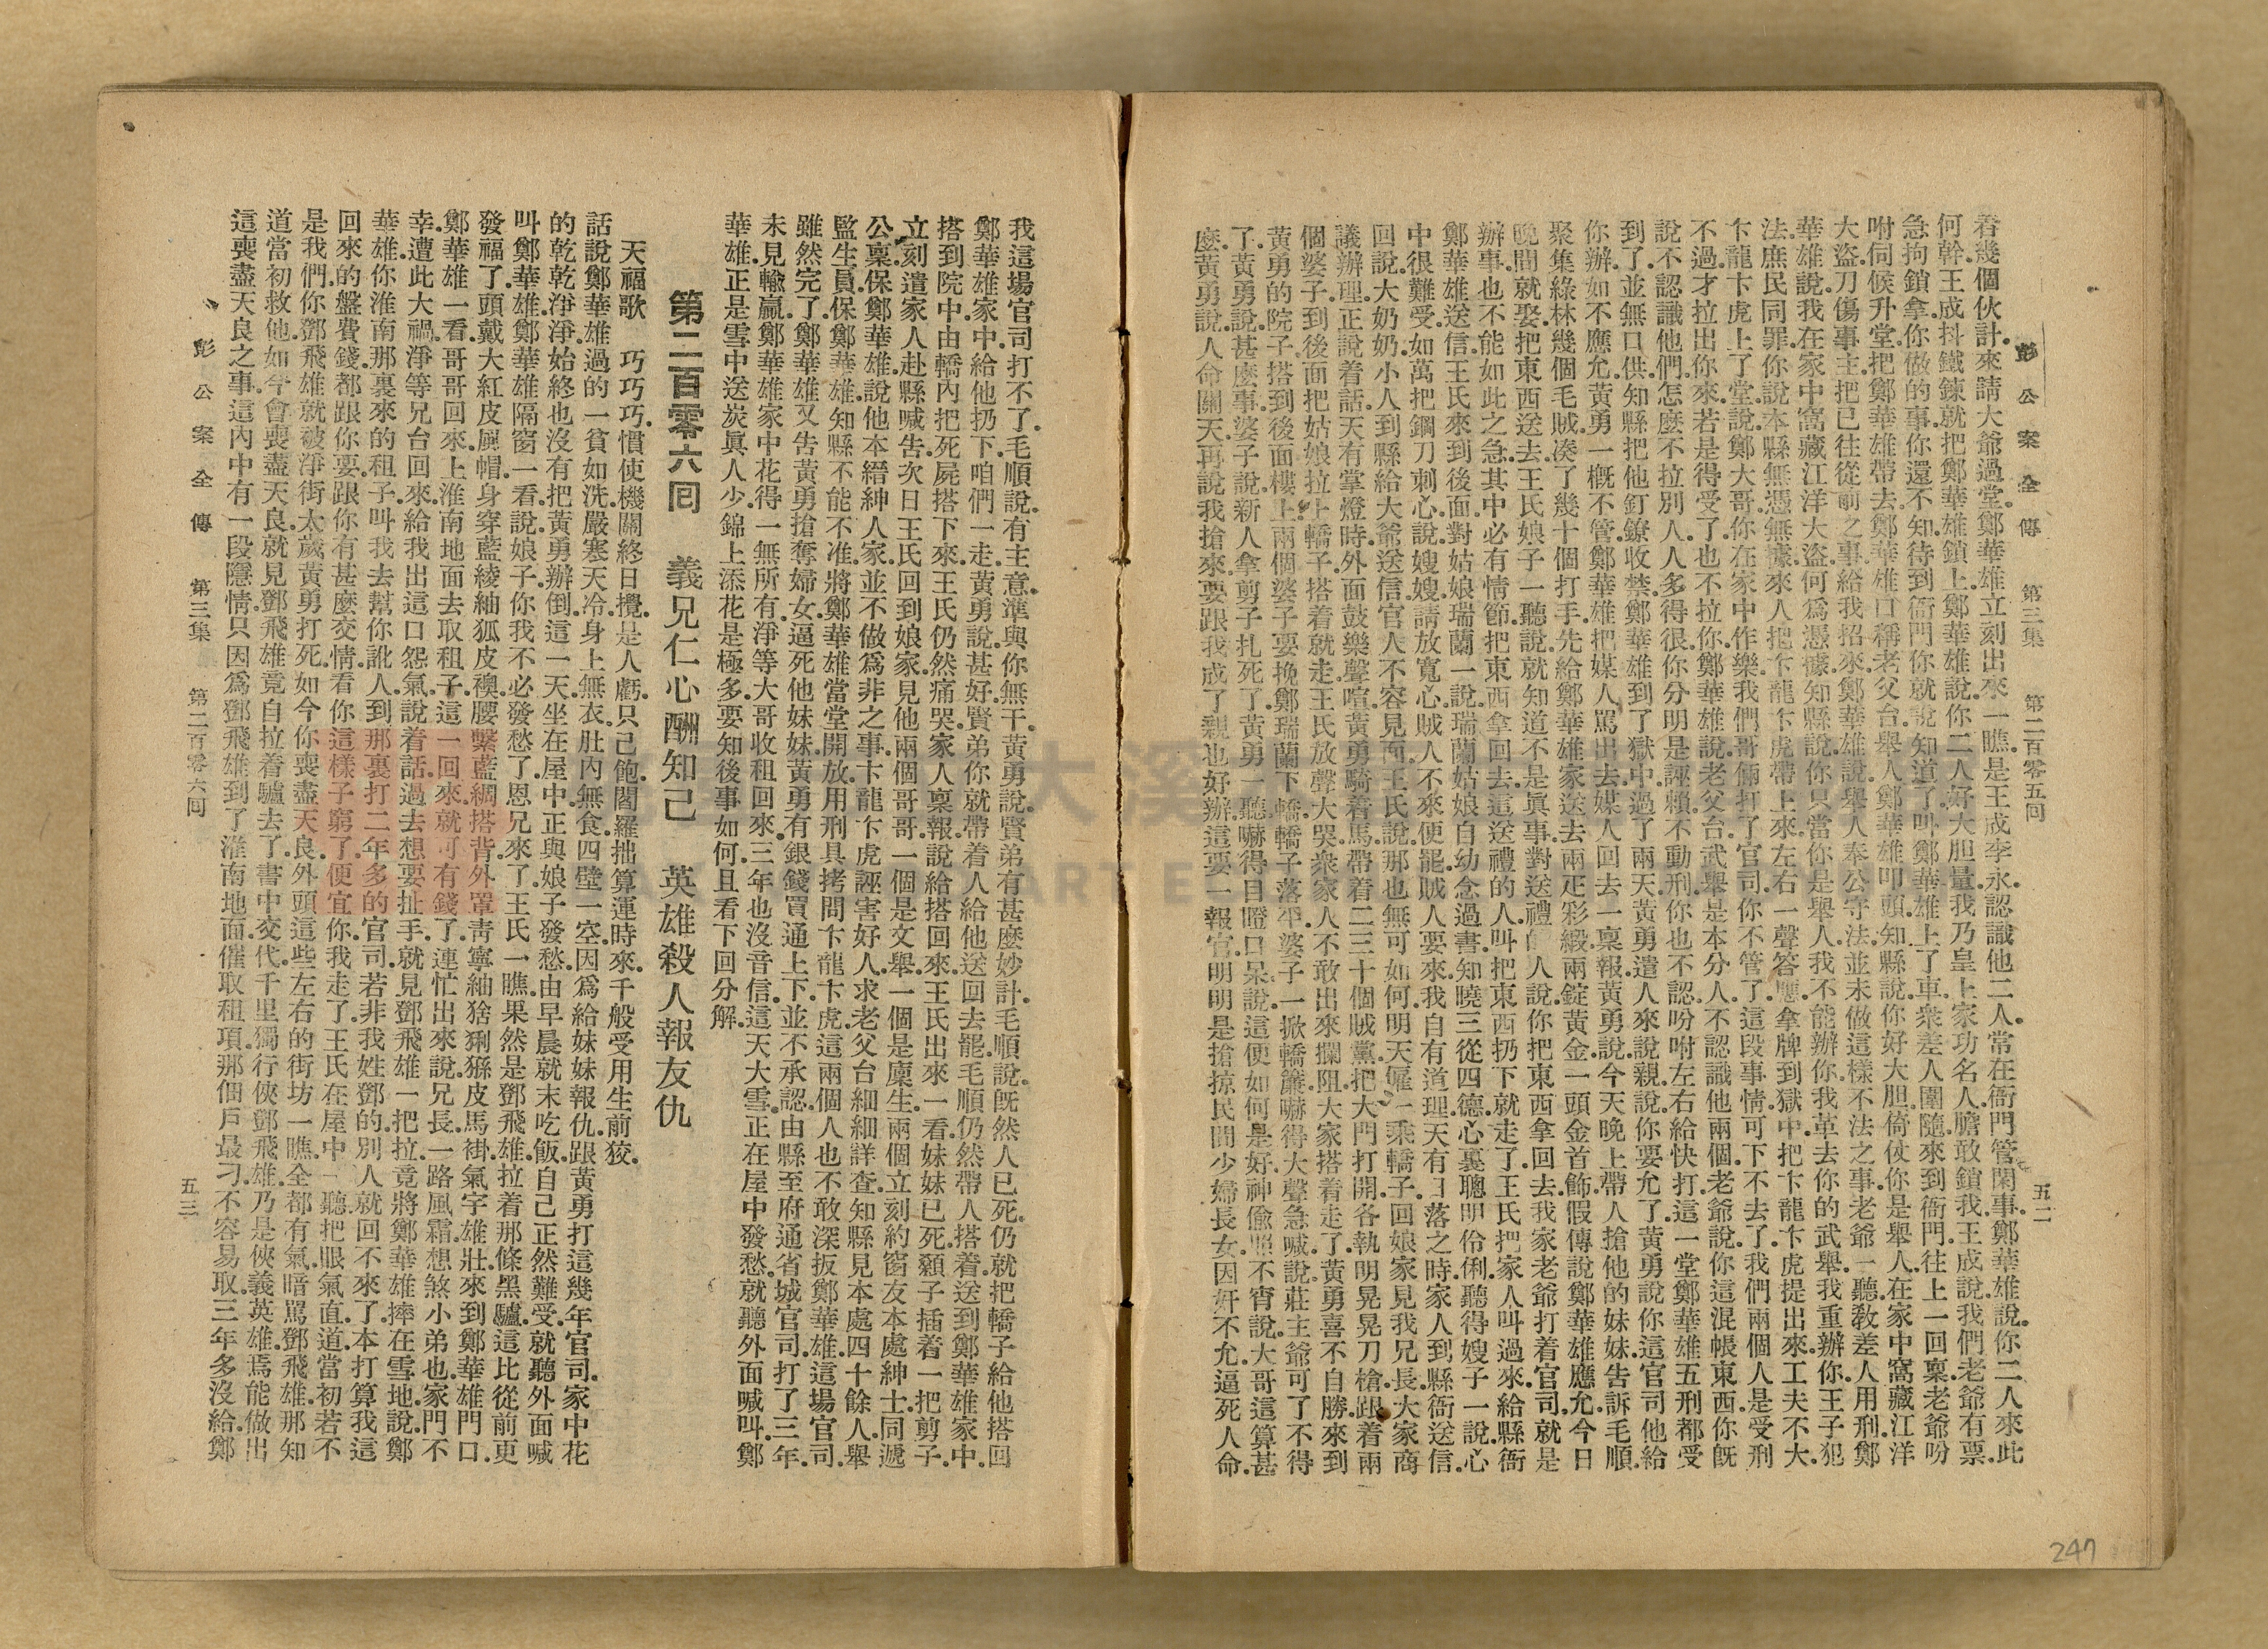 彭公案全傳 第三集 第二百零五回 五二
着幾個伙計.來請大爺過堂.鄭華雄立刻出來.一瞧.是王成李永.認識他二人.常在衙門管閑事.鄭華雄說.你二人來此
何幹.王成抖鐵鍊.就把鄭華雄鎖上.鄭華雄說.你二人好大胆量.我乃皇上家功名人.膽敢鎖我.王成說.我們老爺有票.
急拘鎖拿.你做的事.你還不知.待到衙門.你就說知道了.叫鄭華雄上了車.衆差人圍隨.來到衙門.往上一回.稟老爺吩
咐.伺候升堂.把鄭華雄帶去.鄭華雄口稱老父台.舉人鄭華雄叩頭.知縣說.你好大胆.倚仗你是舉人.在家中窩藏江洋
大盜.刀傷事主.把已往從前之事給我招來.鄭華雄說.舉人奉公守法.並未做這樣不法之事.老爺一聽.敎差人用刑.鄭
華雄說.我在家中窩藏江洋大盜.何爲憑據.知縣說.你只當你是舉人.我不能辦你.我革去你的武舉.我重辦你.王子犯
法.庶民同罪.你說本縣無憑無據.來人.把卞龍卞虎帶上來.左右一聲答應.拿牌到獄中把卞龍卞虎提出來.工夫不大.
卞龍卞虎上了堂.說.鄭大哥.你在家中作樂.我們哥倆打了官司.你不管了.這段事情.可下不去了.我們兩個人是受刑
不過.才拉出你來.若是得受了.也不拉你.鄭華雄說.老父台.武舉是本分人.不認識他兩個.老爺說.你這混帳東西.你旣
說不認識他們.怎麼不拉別人.人多得很.你分明是誣賴.不動刑.你也不認.吩咐左右.給快打.這一堂.鄭華雄五刑都受
到了.並無口供.知縣把他釘鐐收禁.鄭華雄到了獄中.過了兩天.黃勇遣人來說親.說.你要允了.黃勇說.你這官司他給
你辦.如不應允.黃勇一概不管.鄭華雄把媒人駡出去.媒人回去一稟報.黃勇說.今天晚上帶人搶他的妹妹.告訴毛順.
聚集綠林幾個毛賊.湊了幾十個打手.先給鄭華雄家送去兩疋彩緞.兩錠黃金.一頭金首飾.假傳說鄭華雄應允.今日
晚間就娶.把東西送去.王氏娘子一聽說.就知道不是眞事.對送禮的人說.你把東西拿回去.我家老爺打着官司.就是
辦事.也不能如此之急.其中必有情節.把東西拿回去.這送禮的人.叫把東西扔下就走了.王氏把家人叫過來.給縣衙
鄭華雄送信.王氏來到後面.對姑娘瑞蘭一說.瑞蘭姑娘自幼念過書.知曉三從四德.心裏聰明伶俐.聽得嫂子一說.心
中很難受.如萬把鋼刀刺心.說.嫂嫂請放寬心.賊人不來便罷.賊人要來.我自有道理.天有日落之時.家人到縣衙送信.
回說.大奶奶.小人到縣給大爺送信.官人不容見面.王氏說.那也無可如何.明天僱一乘轎子.回娘家見我兄長.大家商
議辦理.正說着話.天有掌燈時.外面鼓樂聲喧.黃勇騎着馬.帶着二三十個賊黨.把大門打開.各執明晃晃刀槍.跟着兩
個婆子.到後面把姑娘拉上轎子.搭着就走.王氏放聲大哭.衆家人不敢出來攔阻.大家搭着走了.黃勇喜不自勝.來到
黃勇的院子.搭到後面樓上.兩個婆子要挽鄭瑞蘭下轎.轎子落平.婆子一掀轎簾.嚇得大聲急喊.說.莊主爺.可了不得
了.黃勇說.甚麼事.婆子說.新人拿剪子扎死了.黃勇一聽.嚇得目瞪口呆.說.這便如何是好.神偸照不宵說.大哥.這算甚
麼.黃勇說.人命關天.再說.我搶來要跟我成了親也好辦.這要一報官.明明是搶掠民間少婦長女.因奸不允.逼死人命.
247
我這場官司打不了.毛順說.有主意.準與你無干.黃勇說.賢弟有甚麼妙計.毛順說.旣然人已死.仍就把轎子給他搭回
鄭華雄家中.給他扔下.咱們一走.黃勇說.甚好.賢弟你就帶着人給他送回去罷.毛順仍然帶人搭着.送到鄭華雄家中.
搭到院中.由轎內把死屍搭下來.王氏仍然痛哭.家人稟報.說給搭回來.王氏出來一看.妹妹已死.顙子插着一把剪子.
立刻遣家人赴縣喊告.次日王氏回到娘家.見他兩個哥哥.一個是文舉.一個是廩生.兩個立刻約窗友.本處紳士.同遞
公稟.保鄭華雄.說他本縉紳人家.並不做爲非之事.卞龍卞虎誣害好人.求老父台細細詳查.知縣見本處四十餘人.舉
監生員.保鄭華雄.知縣不能不准.將鄭華雄當堂開放.用刑具拷問卞龍卞虎.這兩個人也不敢深扳鄭華雄.這場官司.
雖然完了.鄭華雄又告黃勇搶奪婦女.逼死他妹妹.黃勇有銀錢.買通上下.並不承認.由縣至府.通省城官司.打了三年.
未見輸贏.鄭華雄家中花得一無所有.淨等大哥收租回來.三年也沒音信.這天大雪.正在屋中發愁.就聽外面喊叫.鄭
華雄.正是雪中送炭眞人少.錦上添花是極多.要知後事如何.且看下回分解.
第二百零六囘 義兄仁心酬知己 英雄殺人報友仇
天福歌 巧巧巧.慣使機關終日攪.是人虧.只己飽.閻羅拙算運時來.千般受用生前狡.
話說鄭華雄過的一貧如洗.嚴寒天冷.身上無衣.肚內無食.四壁一空.因爲給妹妹報仇.跟黃勇打這幾年官司.家中花
的乾乾淨淨.始終也沒有把黃勇辦倒.這一天坐在屋中.正與娘子發愁.由早晨就未吃飯.自己正然難受.就聽外面喊
叫鄭華雄.鄭華雄隔窗一看.說.娘子.你我不必發愁了.恩兄來了.王氏一瞧.果然是鄧飛雄.拉着那條黑驢.這比從前更
發福了.頭戴大紅皮風帽.身穿藍綾紬狐皮襖.腰繫藍綢搭背.外罩青寧紬猞猁猻皮馬褂.氣宇雄壯.來到鄭華雄門口.
鄭華雄一看.哥哥回來.上淮南地面去取租子.這一回來.就可有錢了.連忙出來.說.兄長.一路風霜.想煞小弟也.家門不
幸.遭此大禍.淨等兄台回來.給我出這口怨氣.說着話.過去想要扯手.就見鄧飛雄一把拉.竟將鄭華雄摔在雪地.說.鄭
華雄.你淮南那裏來的租子.叫我去幫你訛人.到那裏打二年多的官司.若非我姓鄧的.別人就回不來了.本打算我這
回來的盤費錢都跟你要.跟你有甚麼交情.看你這樣子窮了.便宜你.我走了.王氏在屋中一聽.把眼氣直.道.當初若不
是我們.你鄧飛雄就破淨街太歲黃勇打死.如今你喪盡天良.外頭這些左右的街坊一瞧.全都有氣.暗駡鄧飛雄.那知
道當初救他.如今會喪盡天良.就見鄧飛雄竟自拉着驢去了.書中交代.千里獨行俠鄧飛雄.乃是俠義英雄.焉能做出
這喪盡天良之事.這內中有一段隱情.只因爲鄧飛雄到了淮南地面.催取租項.那佃戶最刁.不容易取.三年多沒給鄭
彭公案全傳 第三集 第二百零六回 五三